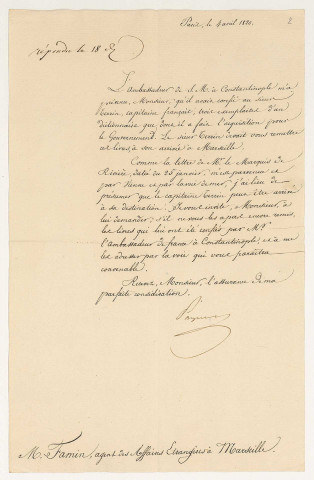 Paris, le 4 avril 1821.
2
répondu le 18 dt
L'ambassadeur de S. M. à Constantinople m'a
prévenu, Monsieur, qu'il avait confié au sieur
capitaine français, trois exemplaires d'un
dictionnaire que dont il a fait l'acquisition pour
le Gouvernement. Le sieur devait vous remettre
ces livres à son arrivée à Marseille.
Comme la lettre de Mr. le Marquis de
Rivière, datée du 25 janvier, m'est parvenue et
par Vienne et par la voie de mer, j'ai lieu de
présumer que le capitaine peut être arrivé
à sa destination. Je vous invite, Monsieur, à
lui demander, s'il ne vous les a point encore remis,
les livres qui lui ont été confiés par Mr.
l'ambassadeur de france à Constantinople; et à me
les adresser par la voie qui vous paraîtra
convenable.
Recevez, Monsieur, l'assurance de ma
parfaite considération.
M. Famin, agent des Affaires Etrangères à Marseille.